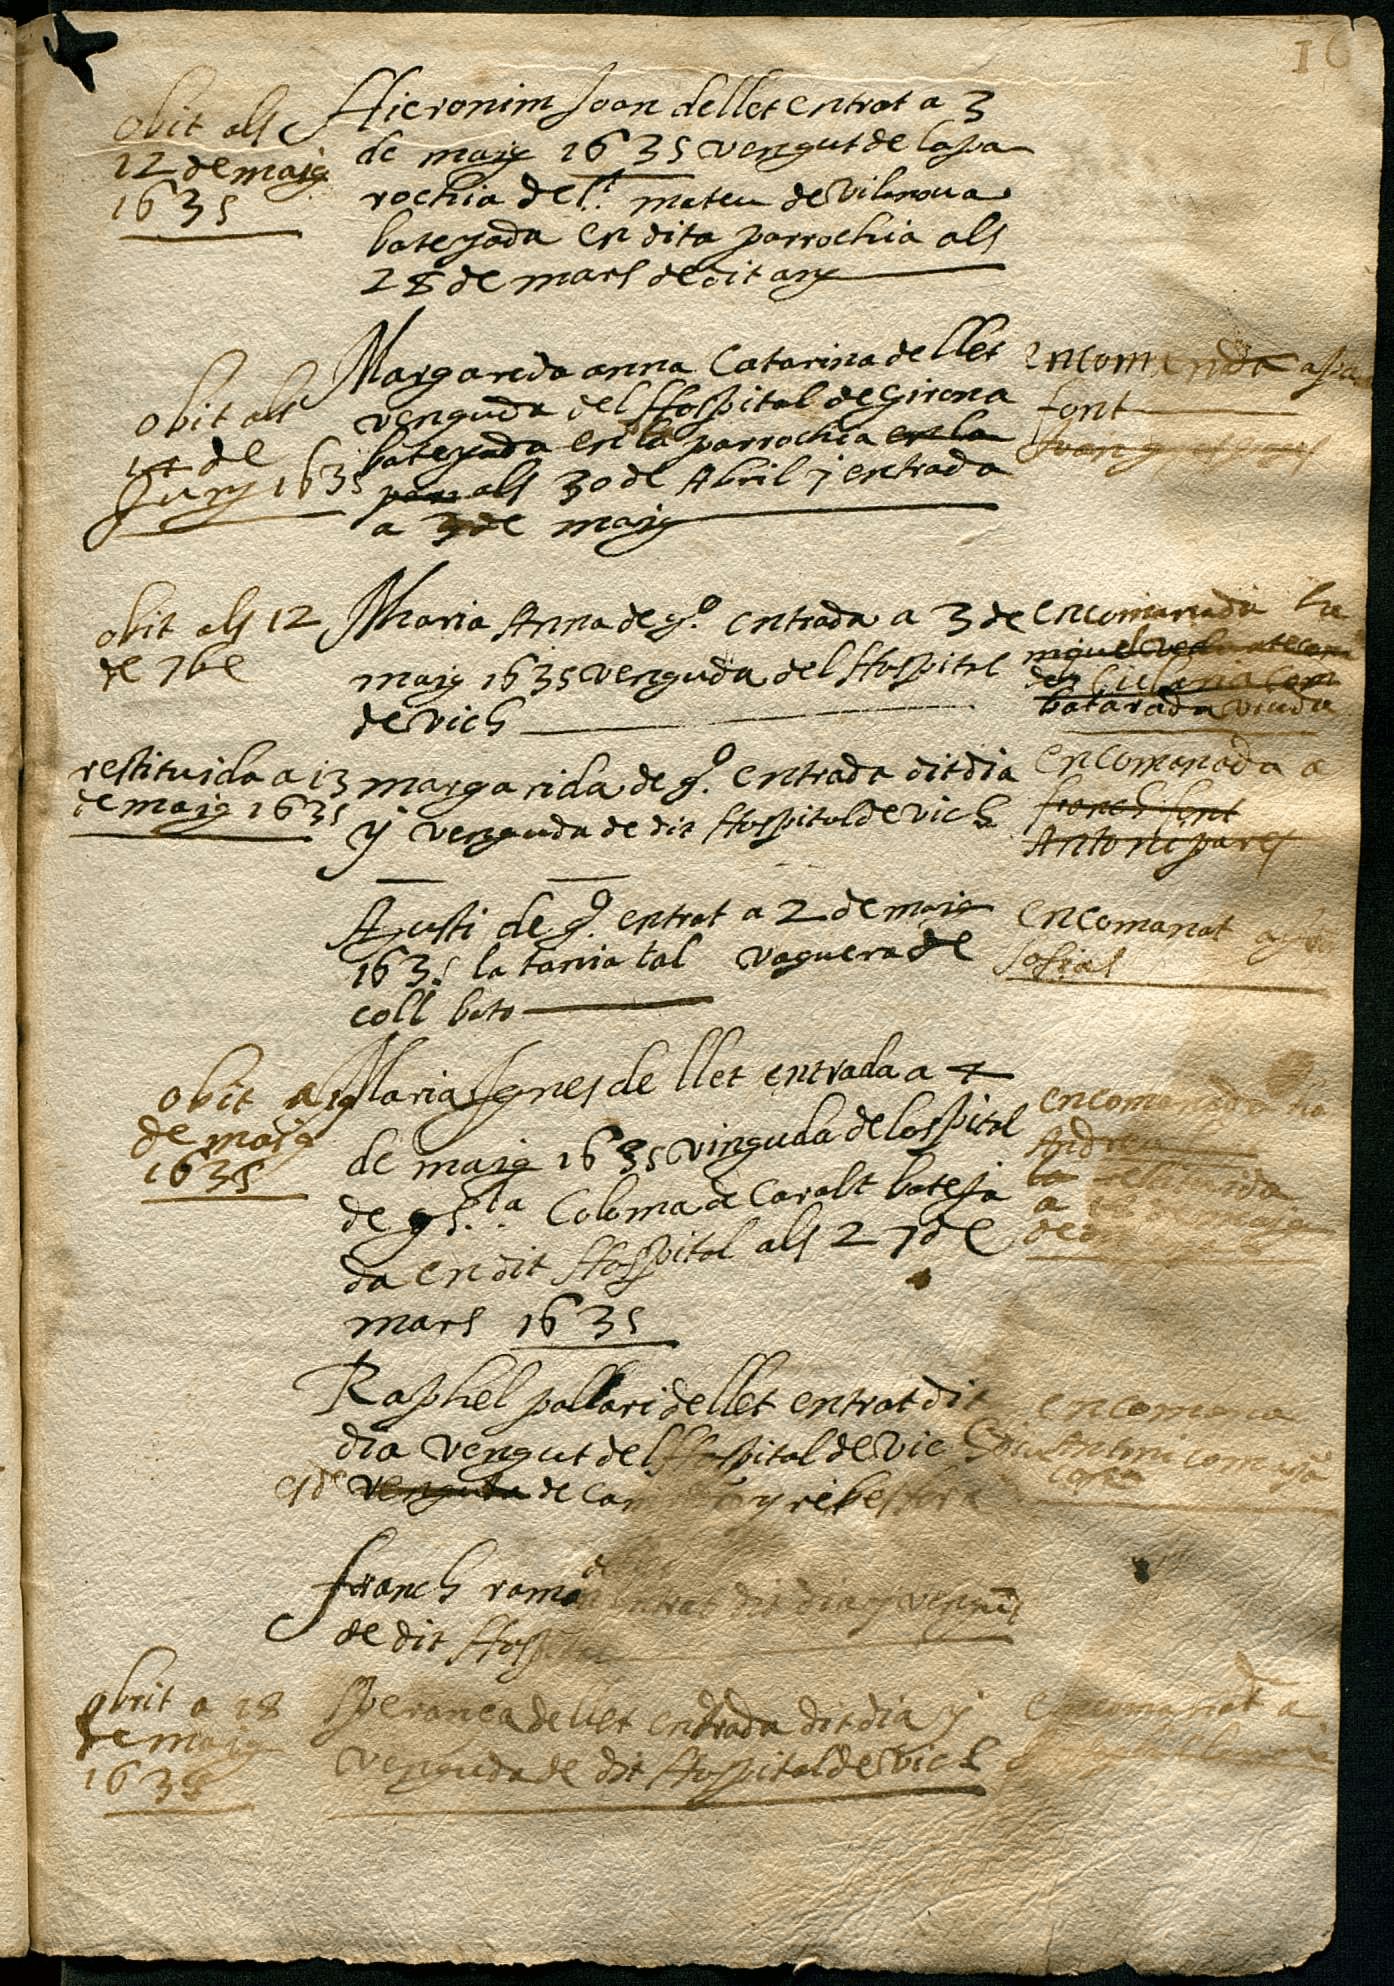 16
obit als
12 de maig
1635
Hieronim Joan de llet entrat a 3
de maig 1635 vengut de la pa
rochia de St. mateu de vilanova
batejada en dita parrochia als
28 de mars de dit any
obit als
de
Juny 1635
Margarida anna Catarina de llet
venguda del Hospital de Girona
batejada en la parrochia en la
par als 30 de Abril y entrada
a 3 de maig
encomanada a
font
obit als 12
de 7bre
Maria Anna de go. entrada a 3 de
maig 1635 venguda del Hospital
de vich
encomanada
miquel
batarada viuda
restituida a 13
de maig 1635
margarida de go. entrada dit dia
y venguda de dit Hospital de vich
encomanada a
franch font
Antoni pares
Agusti de go. entrat a 2 de maig
1635 la tania tal vaquera de
coll bato
encomanat a
obit a 19
de maig
1635
Maria Ignes de llet entrada a 4
de maig 1635 vinguda de lospital
de sta. Coloma de Caralt bateja
da en dit Hospital als 27 de
mars 1635
encomanada
Andreu
restituida
a de maig
Raphel pallari de llet entrat dit
dia vengut del Hospital de vic
es de venguda de y
encomana
Antoni
franch ramon de llet entrat dit dia y vengut
de dit Hospital
obiit a 18
de maig
1635
Speranca de llet entrada dit dia y
venguda de dit Hospital de vich
encomanat a